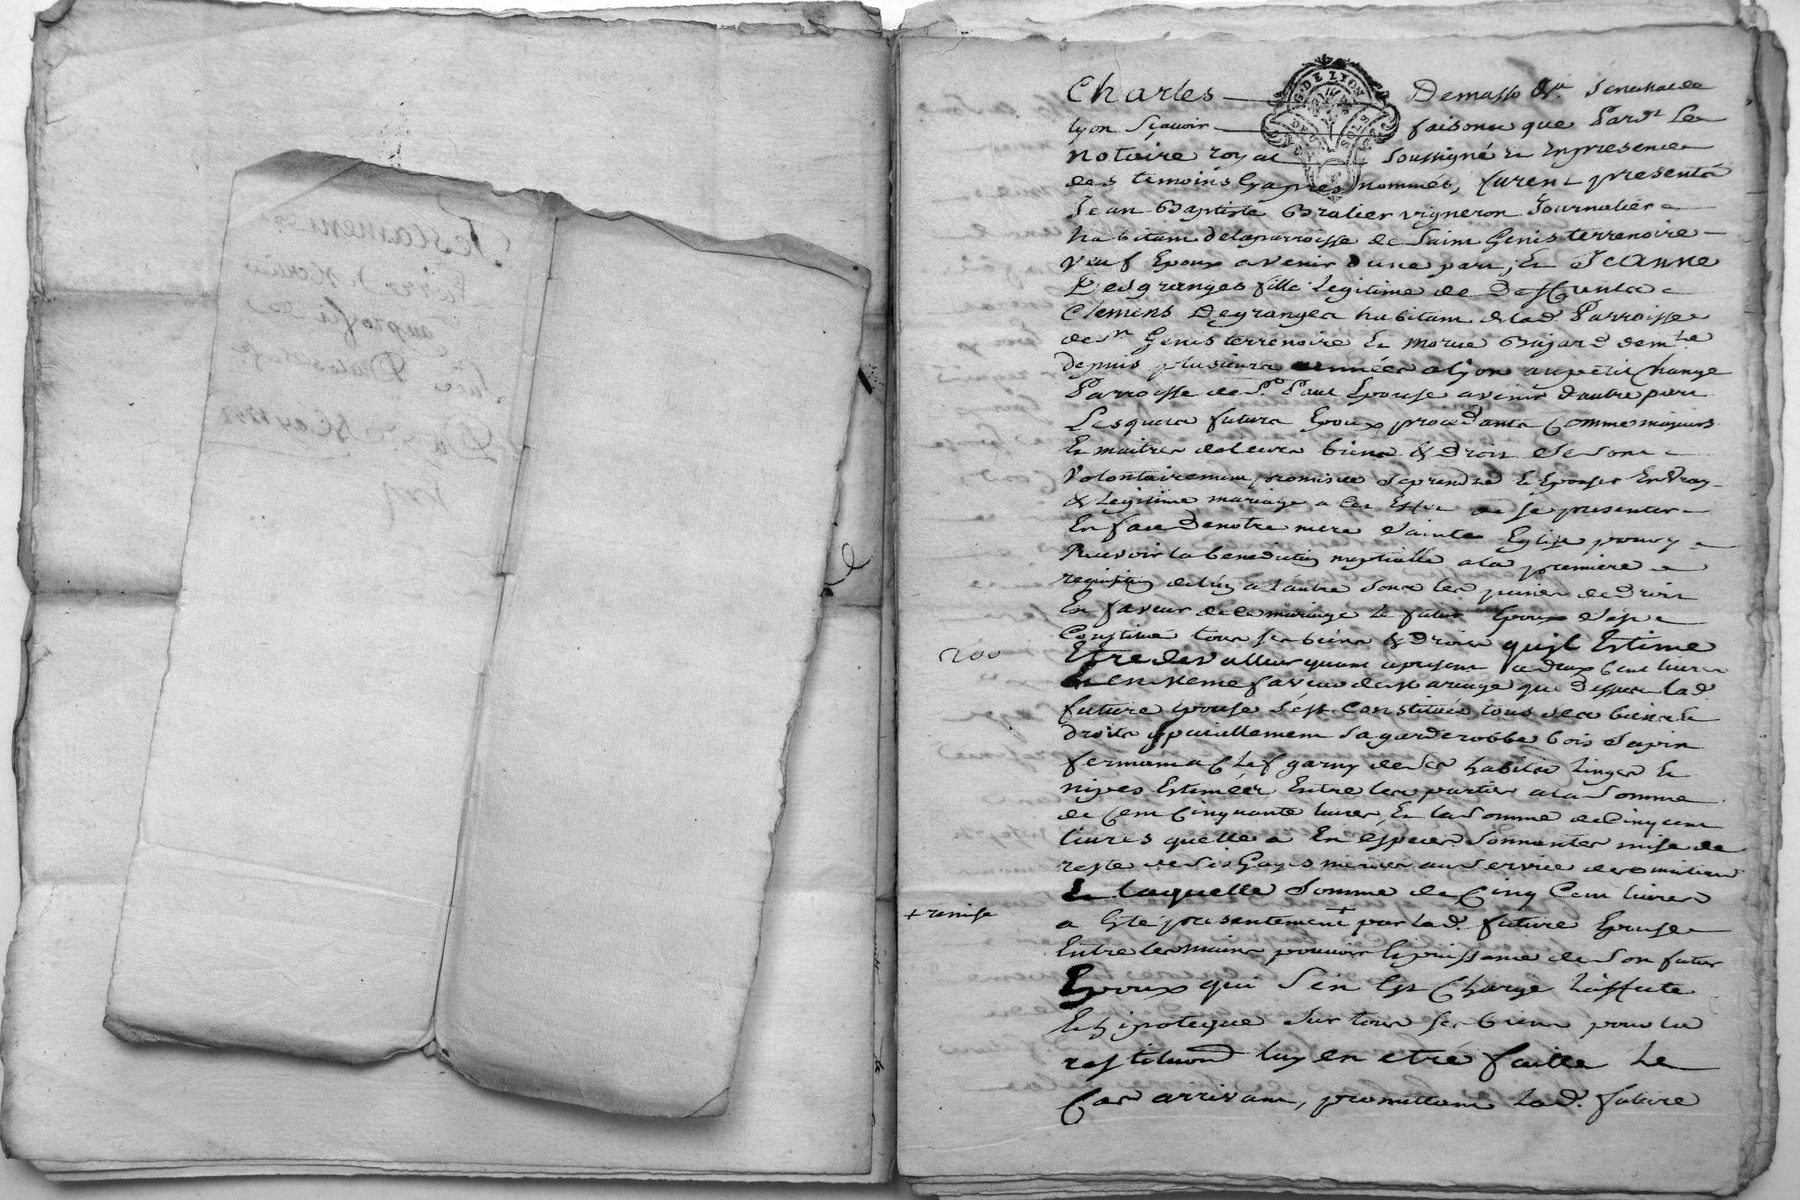 Charles Demasso Sr Senechal de
Lyon Sçavoir faisons que Pardt Le
notaire royal soussigné Et En presence
des temoins Cy apres nommés, furent presents
Jean Baptiste Bralier vigneron Journalier
habitant de la parroisse de Saint Genis terrenoire
veuf Epoux avenir d'une part, Et Jeanne
Desgranges fille Legitime de deffunt
Clemens Degranges habitant de lad. Parroisse
de St Genis terrenoire Et Bajard demte
depuis plusieurs années a lyon au petit Change
Parroisse de St Paul Epouse avenir d'autre part
Lesquels futurs Epoux procedants Comme majeurs
Et maitres de leurs biens & droits se sont
Volontairement promis de se prendre Et Epouser En vray
& Legitime mariage a Cet Effet de se presenter
En face de notre mere Sainte Eglise pour y
Recevoir la benediction nuptialle a la premiere
requisition de l'un a l'autre sous les peines de droit
En faveur de Ce mariage le futur Epoux s'est
Constitué tous ses biens & droits qu'il Estime
Etre de valleur quant a present a deux Cent livres
200
Et En meme faveur de mariage que dessus lad.
future Epouse s'est Constituée tous ses biens Et
droits Specialement sa garderobbe bois Sapin
fermant a Clef garny de ses habits linges Et
nipes Estimées Entre les parties a la somme
de Cent Cinquante livres, Et la somme de Cinq cent
livres qu'elle a En especes sonnantes mise de
reste de ses Gages au service des maitres
Et laquelle Somme de Cinq Cent livres
+ remise
a Eté presentement + par lad. future Epouse
Entre les mains pouvoir Et puissance de son futur
Epoux qui s'en Est Chargé l'affecte
Et hipoteque sur tous ses biens pour la
restitution luy en etre faitte Le
Cas arrivant, promettant Lad. future